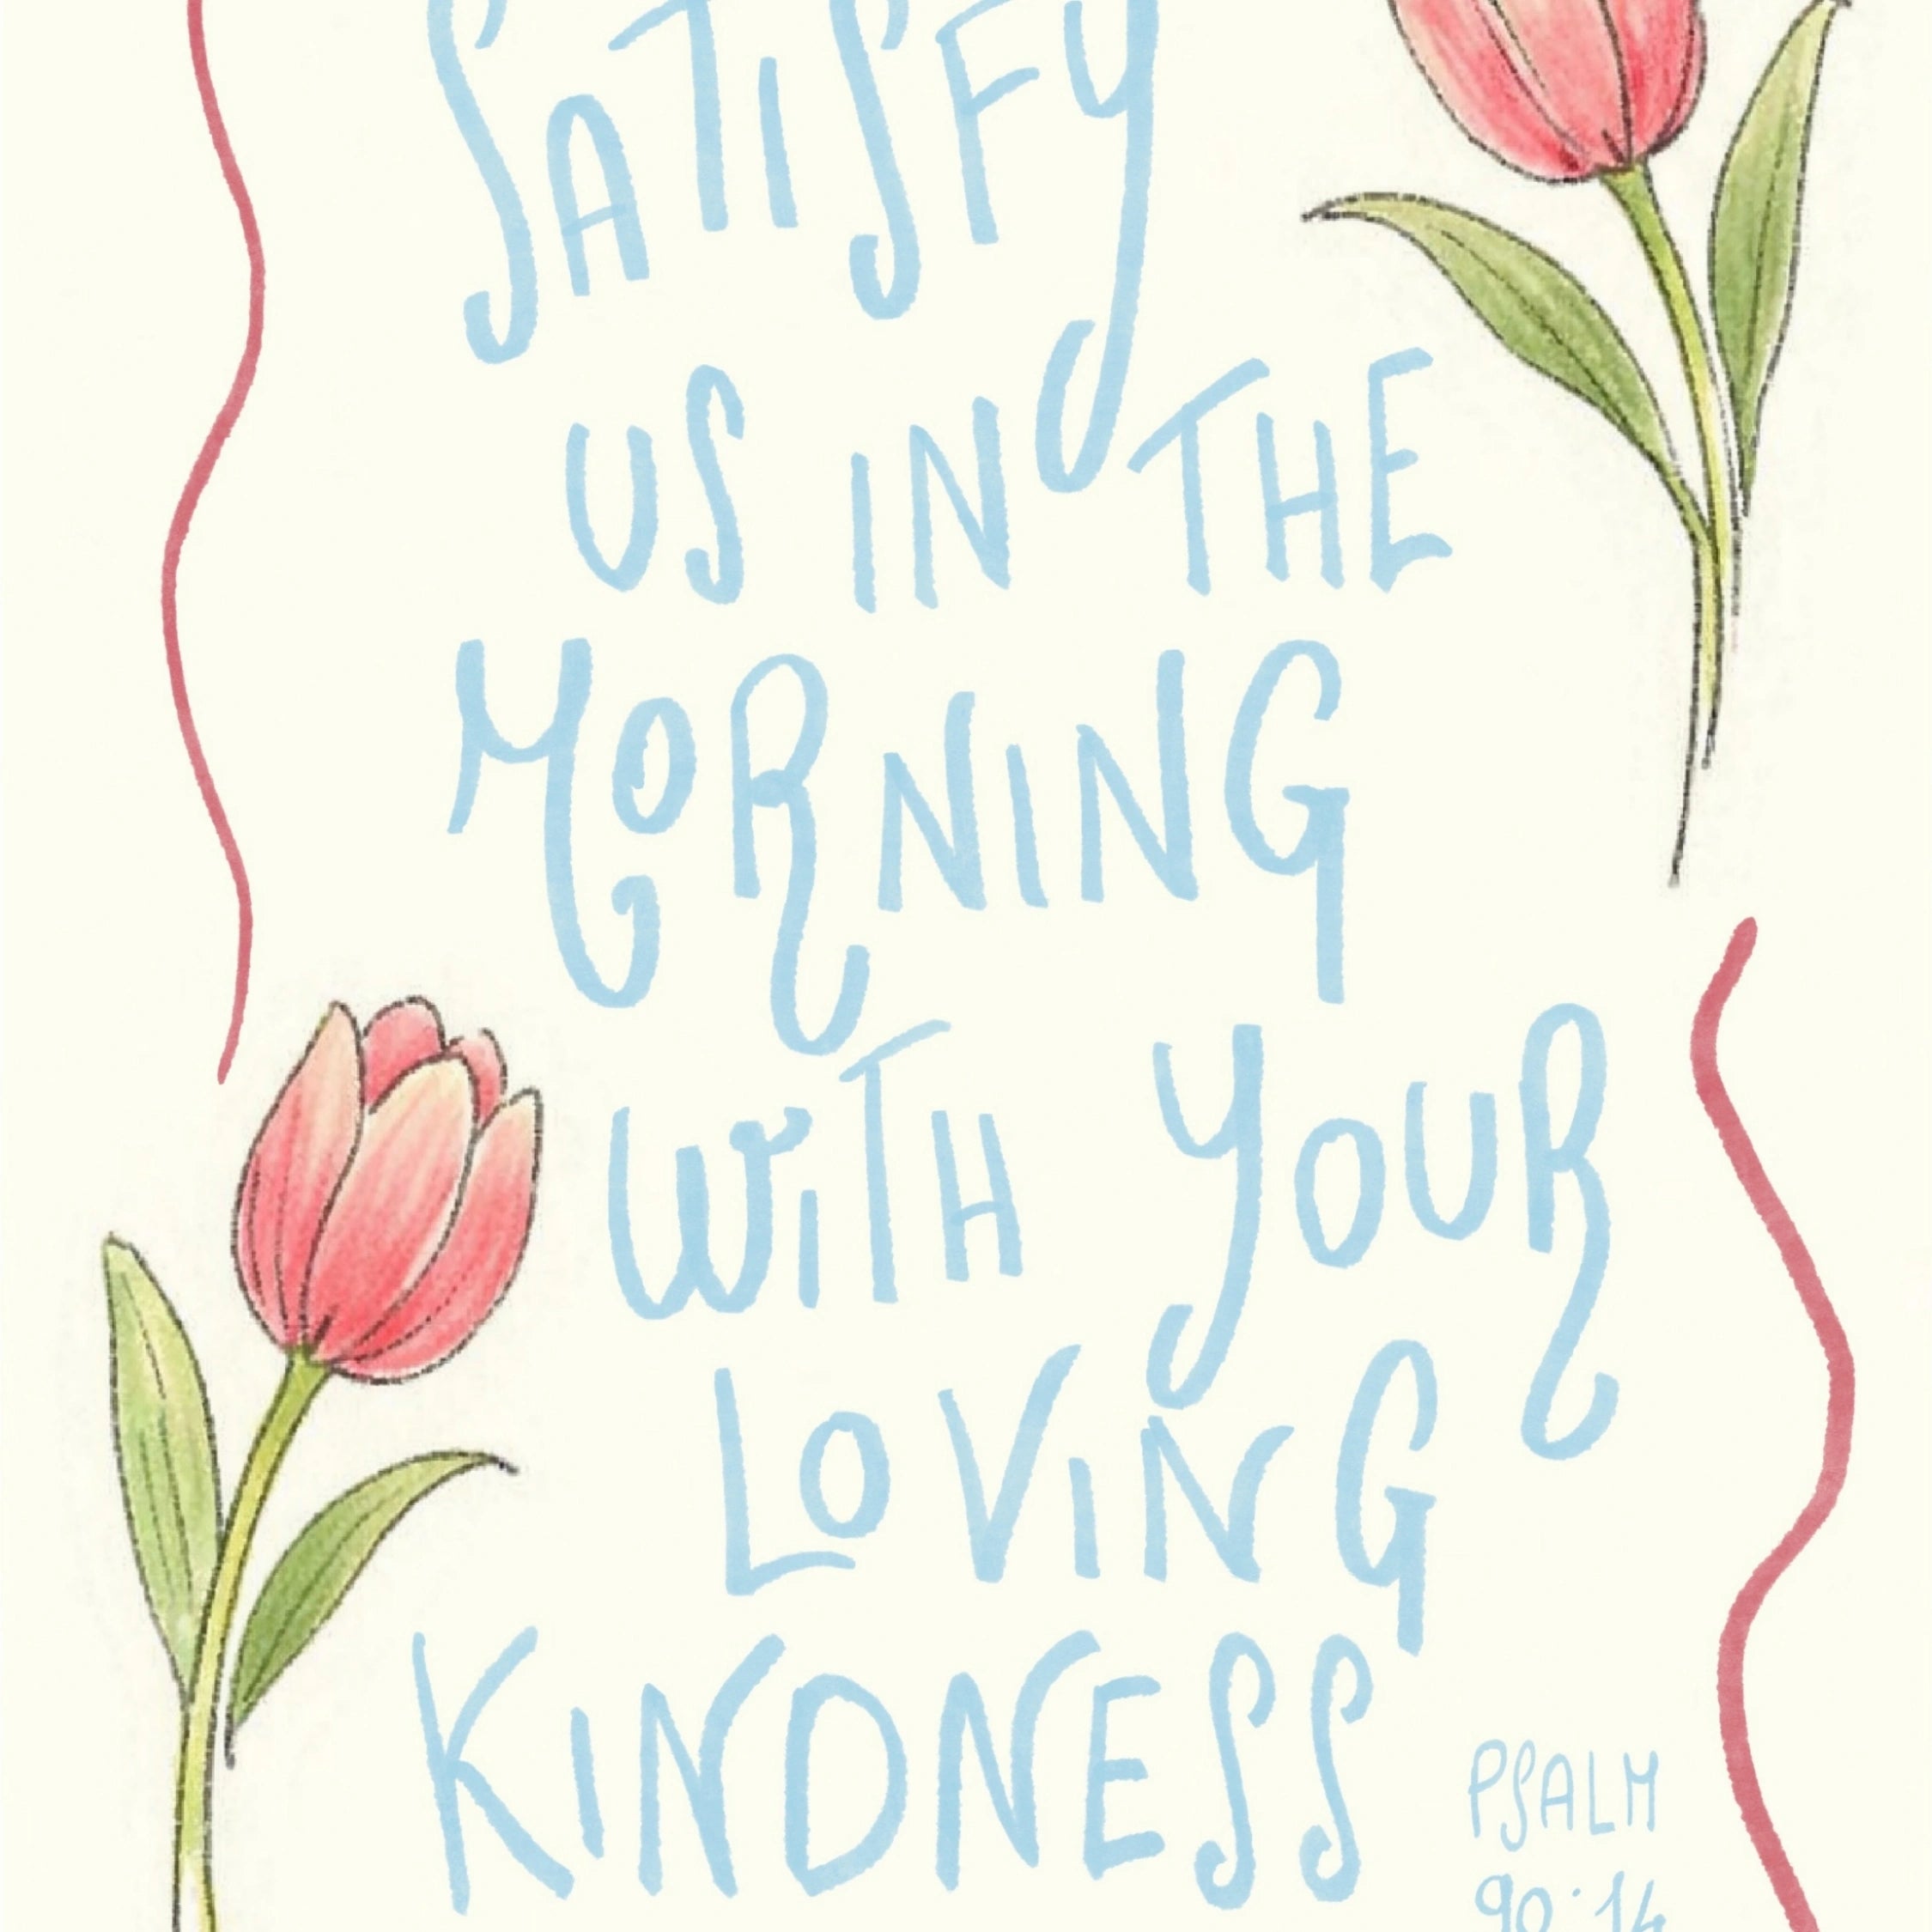 SATISFY
US IN THE
MORNING
WITH YOUR
LOVING
KINDNESS
PSALM
90:14